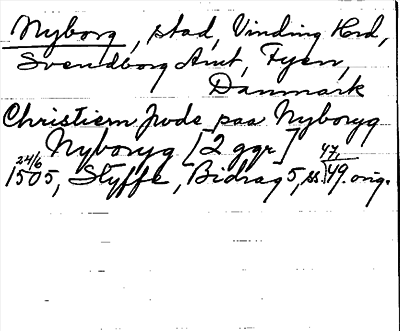 Nyborg, stad, Vinding Hrd,
Svendborg Amt, Fyen,
Danmark
Christiern Jude paa Nyboryg
Nyboryg [2 ggr]
24/6 1505, Styffe, Bidrag 5, ss. 47, 149. orig.